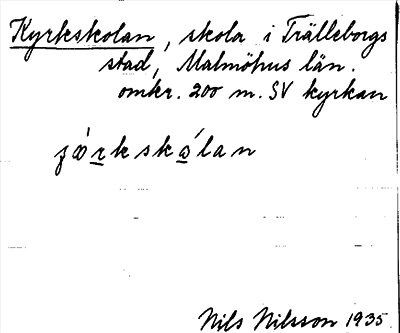 Kyrkskolan, skola i Trälleborgs
stad, Malmöhus län.
omkr. 200 m. SV kyrkan
Nils Nilsson 1935